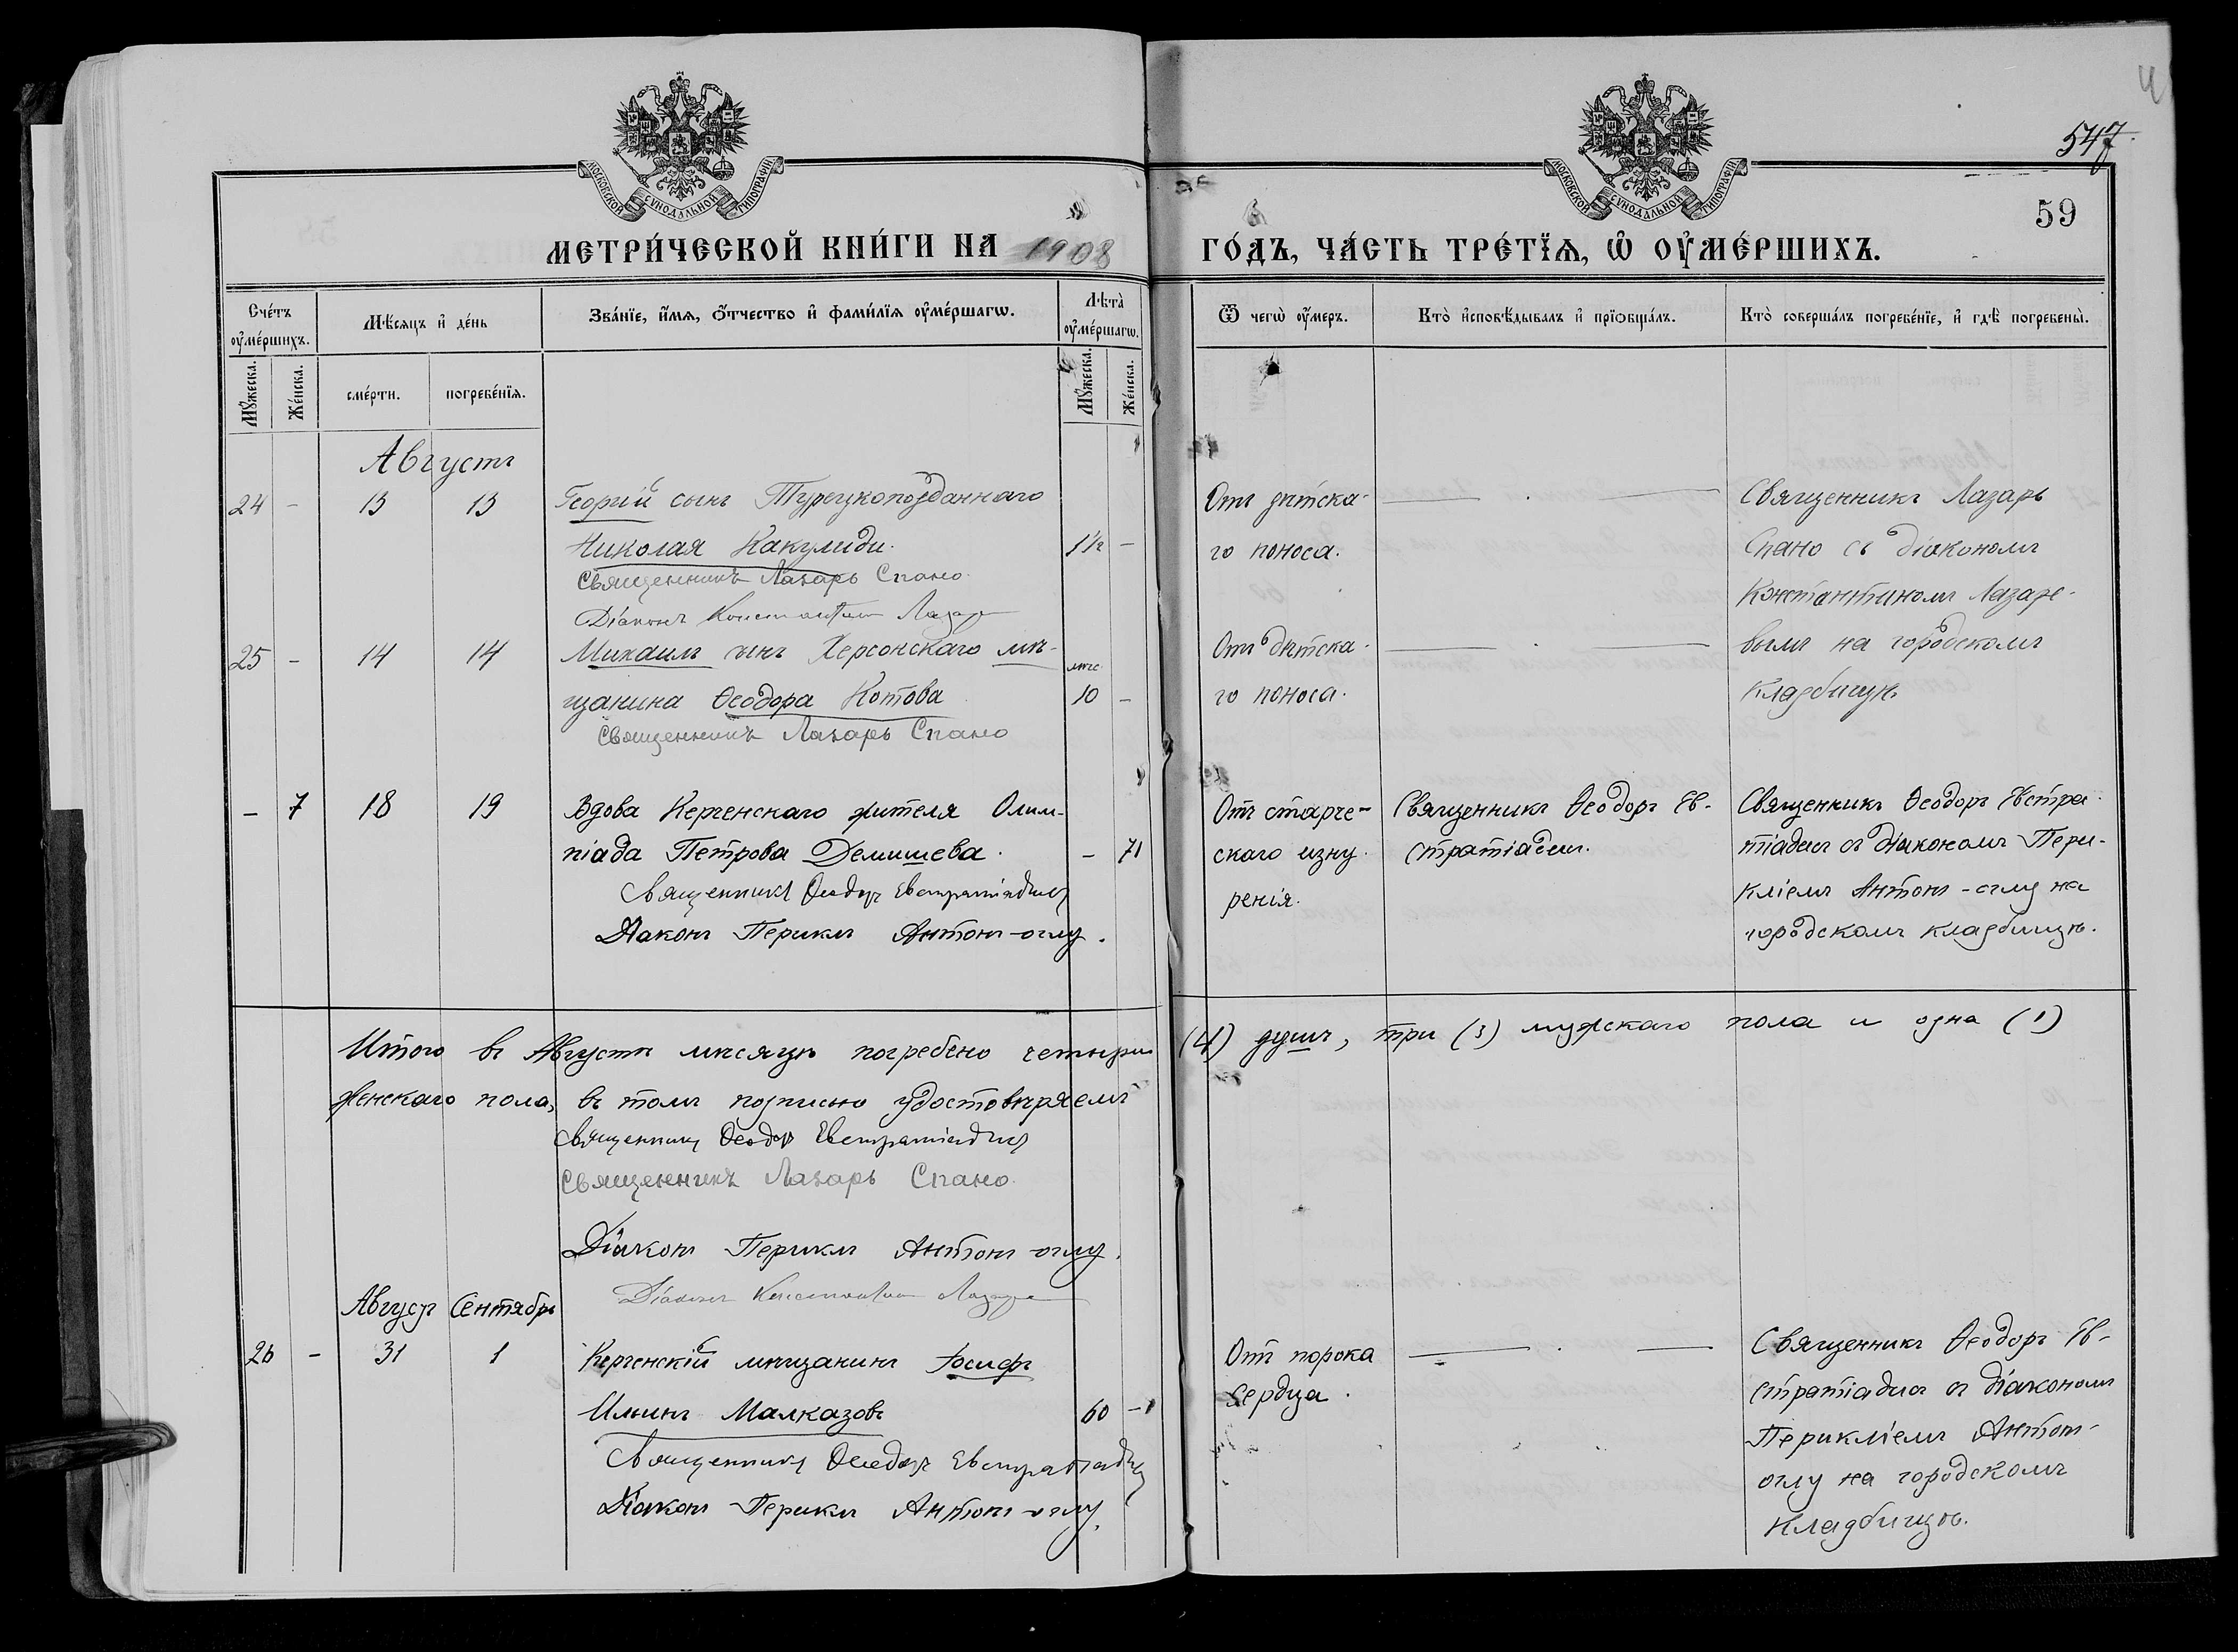 547
59
МОСКОВСКОЙ СѴНОДАЛЬНОЙ ТИПОГРАФІИ
МОСКОВСКОЙ СѴНОДАЛЬНОЙ ТИПОГРАФІИ
МЕТРИ́ЧЕСКОЙ КНИ́ГИ НА 1908 ГО́ДЪ, ЧА́СТЬ ТРЕ́ТЇѦ, Ѡ҆ ОУ҆МЕ́РШИХЪ.
Сче́тъ оу҆ме́ршихъ.
Мѣ́сѧцъ и҆ де́нь
Зва́нїе, и҆́мѧ, ѻ҆́тчество и҆ фами́лїѧ оу҆ме́ршагѡ.
Лѣта̀ оу҆ме́ршагѡ.
Ѿ чегѡ̀ оу҆́меръ.
Кто̀ и҆сповѣ́дывалъ и҆ прїѡбща́лъ.
Кто̀ соверша́лъ погребе́нїе, и҆ гдѣ̀ погребены̀.
Мꙋ́жеска.
Же́нска.
сме́рти.
погребе́нїѧ.
Мꙋ́жеска.
Же́нска.
Августъ
24 - 13 13 Георгій сынъ Турецкоподданнаго
Николая Какулиди. 1½ -
Священникъ Лазарь Спано.
Діаконъ Константин
Отъ дѣтска-
го поноса.
Священникъ Лазарь
Спано съ діакономъ
Константиномъ Лазаре-
вымъ на городскомъ
кладбищѣ.
25 - 14 14 Михаилъ сынъ Херсонскаго мѣ-
щанина Ѳеодора Котова мѣс. 10 -
Священникъ Лазарь Спано
Отъ дѣтска-
го поноса.
- 7 18 19 Вдова Керченскаго жителя Олим-
піада Петрова Демишева. - 71
Священникъ Ѳеодоръ Евстратіадисъ
Діаконъ Периклъ Антонъ-оглу.
Отъ старче-
скаго изну-
ренія.
Священникъ Ѳеодоръ Ев-
стратіадисъ.
Священникъ Ѳеодоръ Евстра-
тіадисъ съ діакономъ Пери-
кліемъ Антонъ-оглу на
городскомъ кладбищѣ.
Итого въ Августѣ мѣсяцѣ погребено четыре (4) душъ, три (3) мужскаго пола и одна (1)
женскаго пола, въ томъ подписью удостовѣряемъ
Священникъ Ѳеодоръ Евстратіадисъ
Священникъ Лазарь Спано.
Діаконъ Периклъ Антонъ-оглу.
Діаконъ Константин
Августъ Сентябрь
26 - 31 1 Керченскій мѣщанинъ Іосифъ
Ильинъ Малказовъ 60 -
Священникъ Ѳеодоръ Евстратіадисъ
Діаконъ Периклъ Антонъ-оглу.
Отъ порока
сердца.
Священникъ Ѳеодоръ Ев-
стратіадисъ съ діакономъ
Перикліемъ Антонъ-
оглу на городскомъ
кладбищѣ.